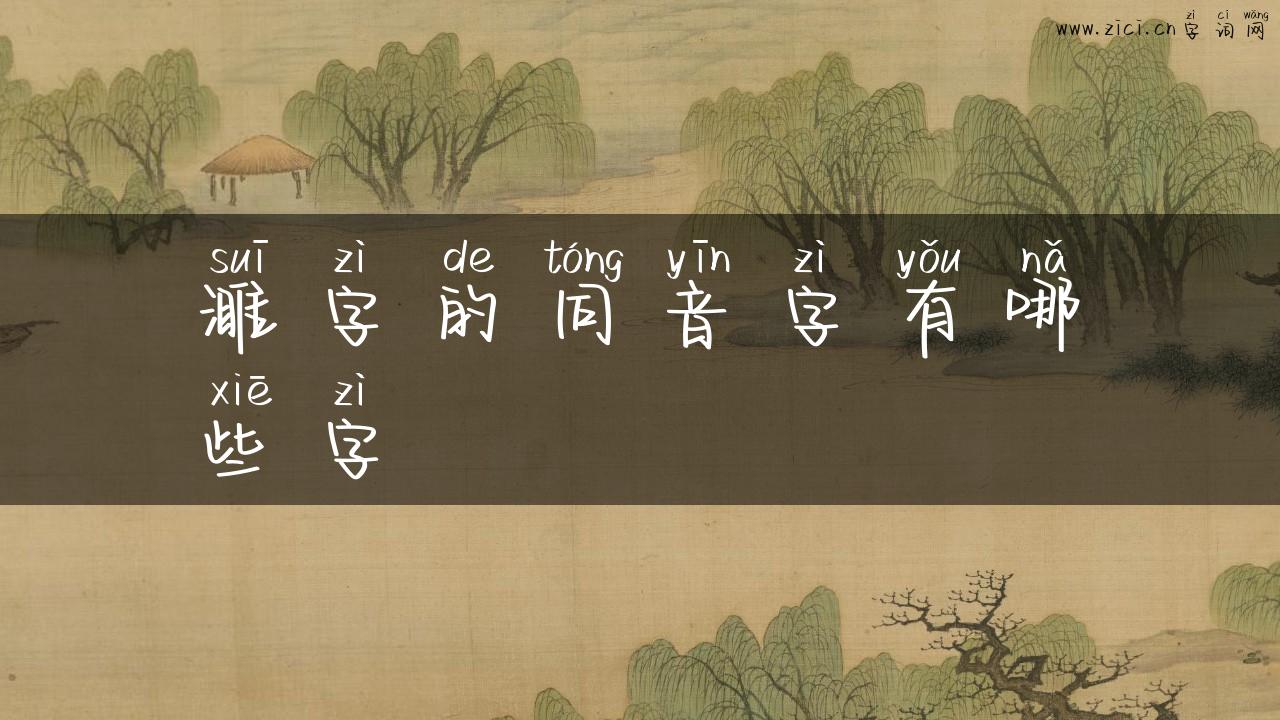 zì cí wǎng
www.zici.cn 字词网
suī zì de tóng yīn zì yǒu nǎ
濉字的同音字有哪
xiē zì
些字